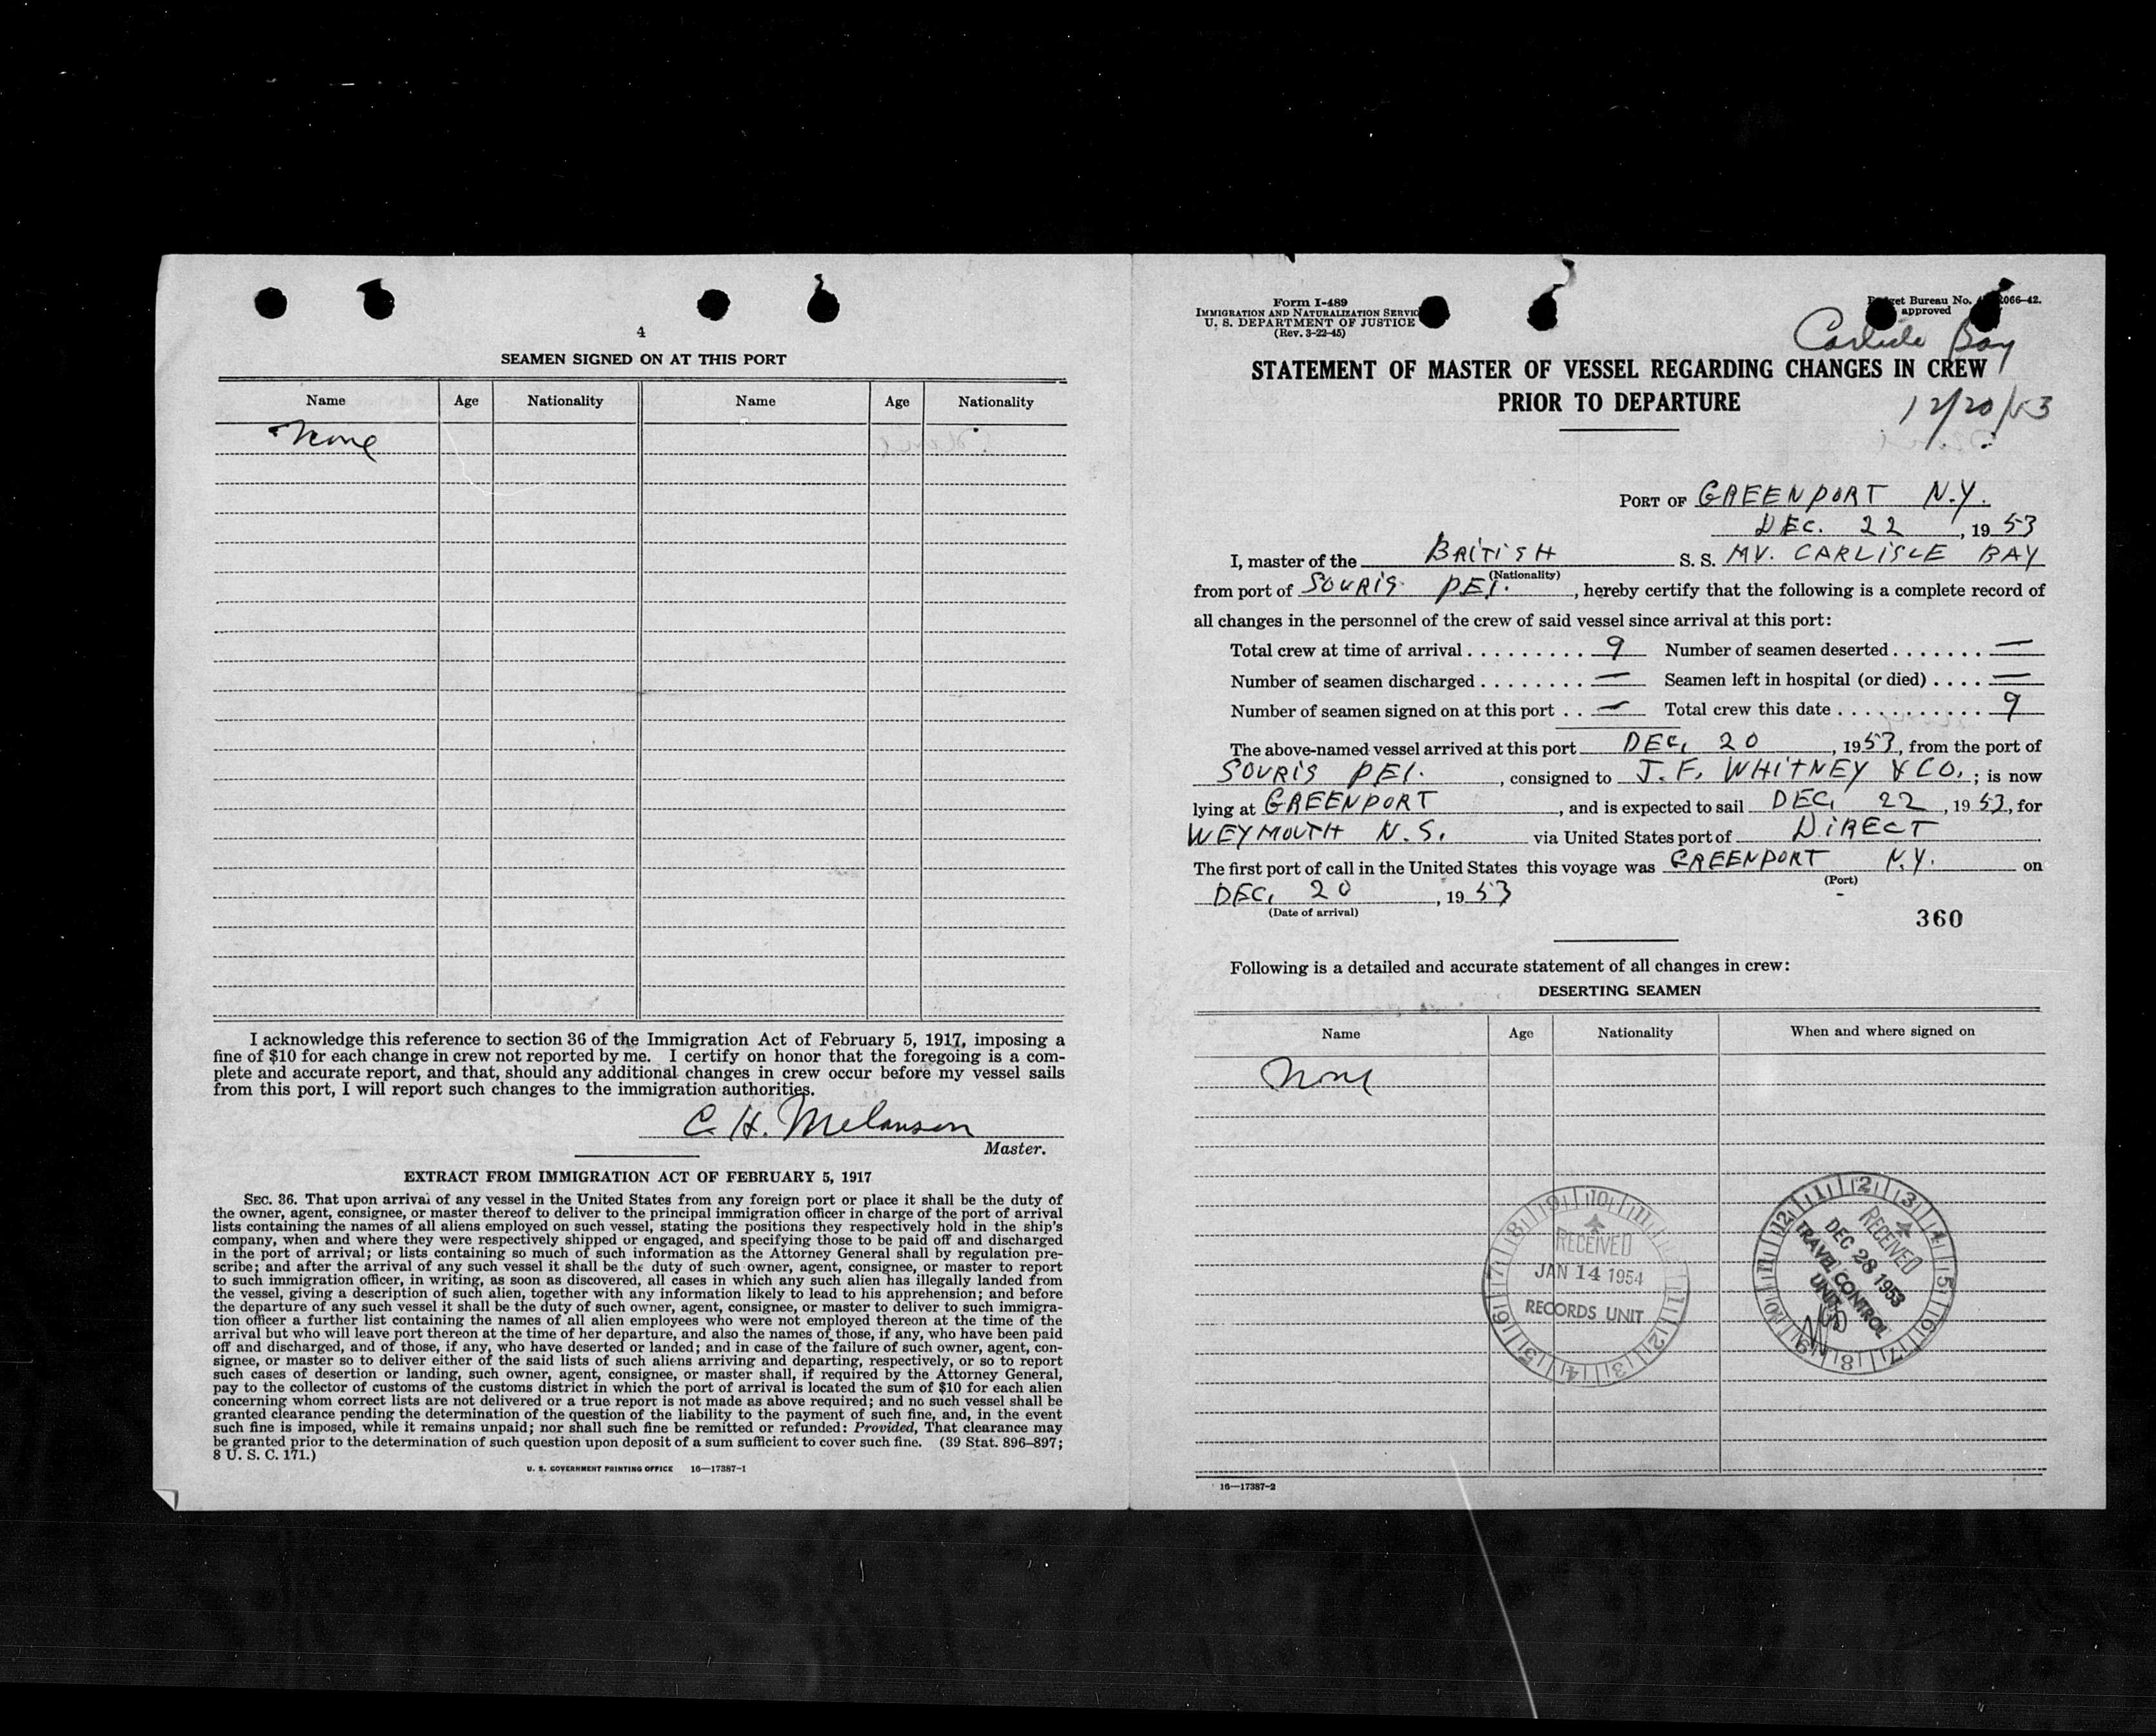 4
SEAMEN SIGNED ON AT THIS PORT
Name Age Nationality Name Age Nationality
None
I acknowledge this reference to section 36 of the Immigration Act of February 5, 1917, imposing a
fine of $10 for each change in crew not reported by me. I certify on honor that the foregoing is a com-
plete and accurate report, and that, should any additional changes in crew occur before my vessel sails
from this port, I will report such changes to the immigration authorities.
C. H. Melanson
Master.
EXTRACT FROM IMMIGRATION ACT OF FEBRUARY 5, 1917
SEC. 36. That upon arrival of any vessel in the United States from any foreign port or place it shall be the duty of
the owner, agent, consignee, or master thereof to deliver to the principal immigration officer in charge of the port of arrival
lists containing the names of all aliens employed on such vessel, stating the positions they respectively hold in the ship's
company, when and where they were respectively shipped or engaged, and specifying those to be paid off and discharged
in the port of arrival; or lists containing so much of such information as the Attorney General shall by regulation pre-
scribe; and after the arrival of any such vessel it shall be the duty of such owner, agent, consignee, or master to report
to such immigration officer, in writing, as soon as discovered, all cases in which any such alien has illegally landed from
the vessel, giving a description of such alien, together with any information likely to lead to his apprehension; and before
the departure of any such vessel it shall be the duty of such owner, agent, consignee, or master to deliver to such immigra-
tion officer a further list containing the names of all alien employees who were not employed thereon at the time of the
arrival but who will leave port thereon at the time of her departure, and also the names of those, if any, who have been paid
off and discharged, and of those, if any, who have deserted or landed; and in case of the failure of such owner, agent, con-
signee, or master so to deliver either of the said lists of such aliens arriving and departing, respectively, or so to report
such cases of desertion or landing, such owner, agent, consignee, or master shall, if required by the Attorney General,
pay to the collector of customs of the customs district in which the port of arrival is located the sum of $10 for each alien
concerning whom correct lists are not delivered or a true report is not made as above required; and no such vessel shall be
granted clearance pending the determination of the question of the liability to the payment of such fine, and, in the event
such fine is imposed, while it remains unpaid; nor shall such fine be remitted or refunded: Provided, That clearance may
be granted prior to the determination of such question upon deposit of a sum sufficient to cover such fine. (39 Stat. 896–897;
8 U. S. C. 171.)
U. S. GOVERNMENT PRINTING OFFICE 16—17387-1
Form I-489
IMMIGRATION AND NATURALIZATION SERVIC
U. S. DEPARTMENT OF JUSTICE
(Rev. 3-22-45)
get Bureau No. 066-42.
approved
Carlisle Bay
STATEMENT OF MASTER OF VESSEL REGARDING CHANGES IN CREW
PRIOR TO DEPARTURE
12/20/53
PORT OF GREENPORT N.Y.
DEC. 22, 1953
I, master of the BRITISH S. S. MV. CARLISLE BAY
(Nationality)
from port of SOURIS PEI., hereby certify that the following is a complete record of
all changes in the personnel of the crew of said vessel since arrival at this port:
Total crew at time of arrival . . . . . . . . . 9 Number of seamen deserted . . . . . . . —
Number of seamen discharged . . . . . . . . — Seamen left in hospital (or died) . . . . —
Number of seamen signed on at this port . . — Total crew this date . . . . . . . . . . . 9
The above-named vessel arrived at this port DEC. 20, 1953, from the port of
SOURIS PEI., consigned to J. F. WHITNEY & CO.; is now
lying at GREENPORT, and is expected to sail DEC. 22, 1953, for
WEYMOUTH N. S. via United States port of DIRECT
The first port of call in the United States this voyage was GREENPORT N.Y. on
(Port)
DEC. 20, 1953
(Date of arrival)
360
Following is a detailed and accurate statement of all changes in crew:
DESERTING SEAMEN
Name Age Nationality When and where signed on
None
9 10 11 12 1 2 3 4 5 6 7 8
RECEIVED
JAN 14 1954
RECORDS UNIT
12 1 2 3 4 5 6 7 8 9 10 11
RECEIVED
DEC 28 1953
TRAVEL CONTROL
UNIT
16—17387-2